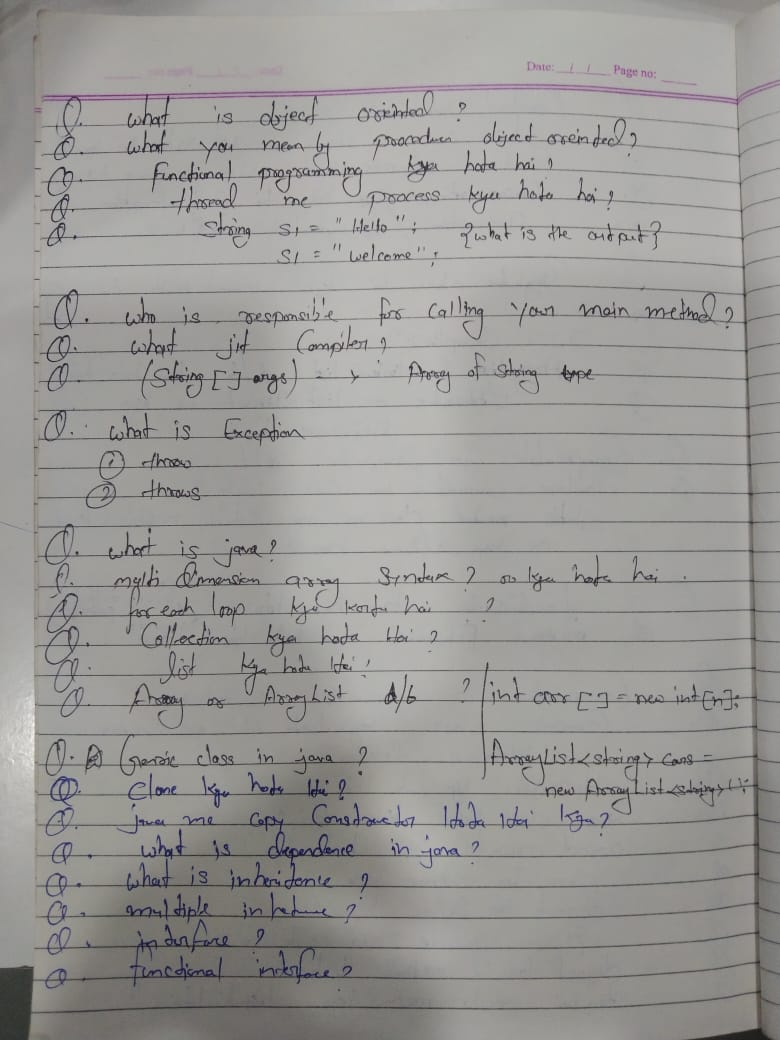 Date: __/__/____ Page no: ____
Q. what is object oreinted ?
Q. what you mean by procedure object oreinded ?
Q. functional programming kya hota hai ?
Q. thread me process kya hota hai ?
Q. String S1 = "Hello" ; {what is the output}
S1 = "welcome" ;
Q. who is responsible for calling your main method ?
Q. what jit Compiler ?
Q. (String [ ] args) - → Array of String type
Q. what is Exception
① throw
② throws
Q. what is java ?
Q. multi Dimension array Syntax ? or kya hota hai .
Q. for each loop kya karta hai ?
Q. Collection kya hota Hai ?
Q. list kya hota Hai ?
Q. Array or ArrayList d/b ? int arr [ ] = new int [n];
Q. Generic class in java ? ArrayList<string> cars =
Q. Clone kya hota Hai ? new ArrayList<string>();
Q. java me copy Constructor Hota Hai kya ?
Q. what is dependence in java ?
Q. what is inheritance ?
Q. multiple ?
Q. interface ?
Q. functional interface ?